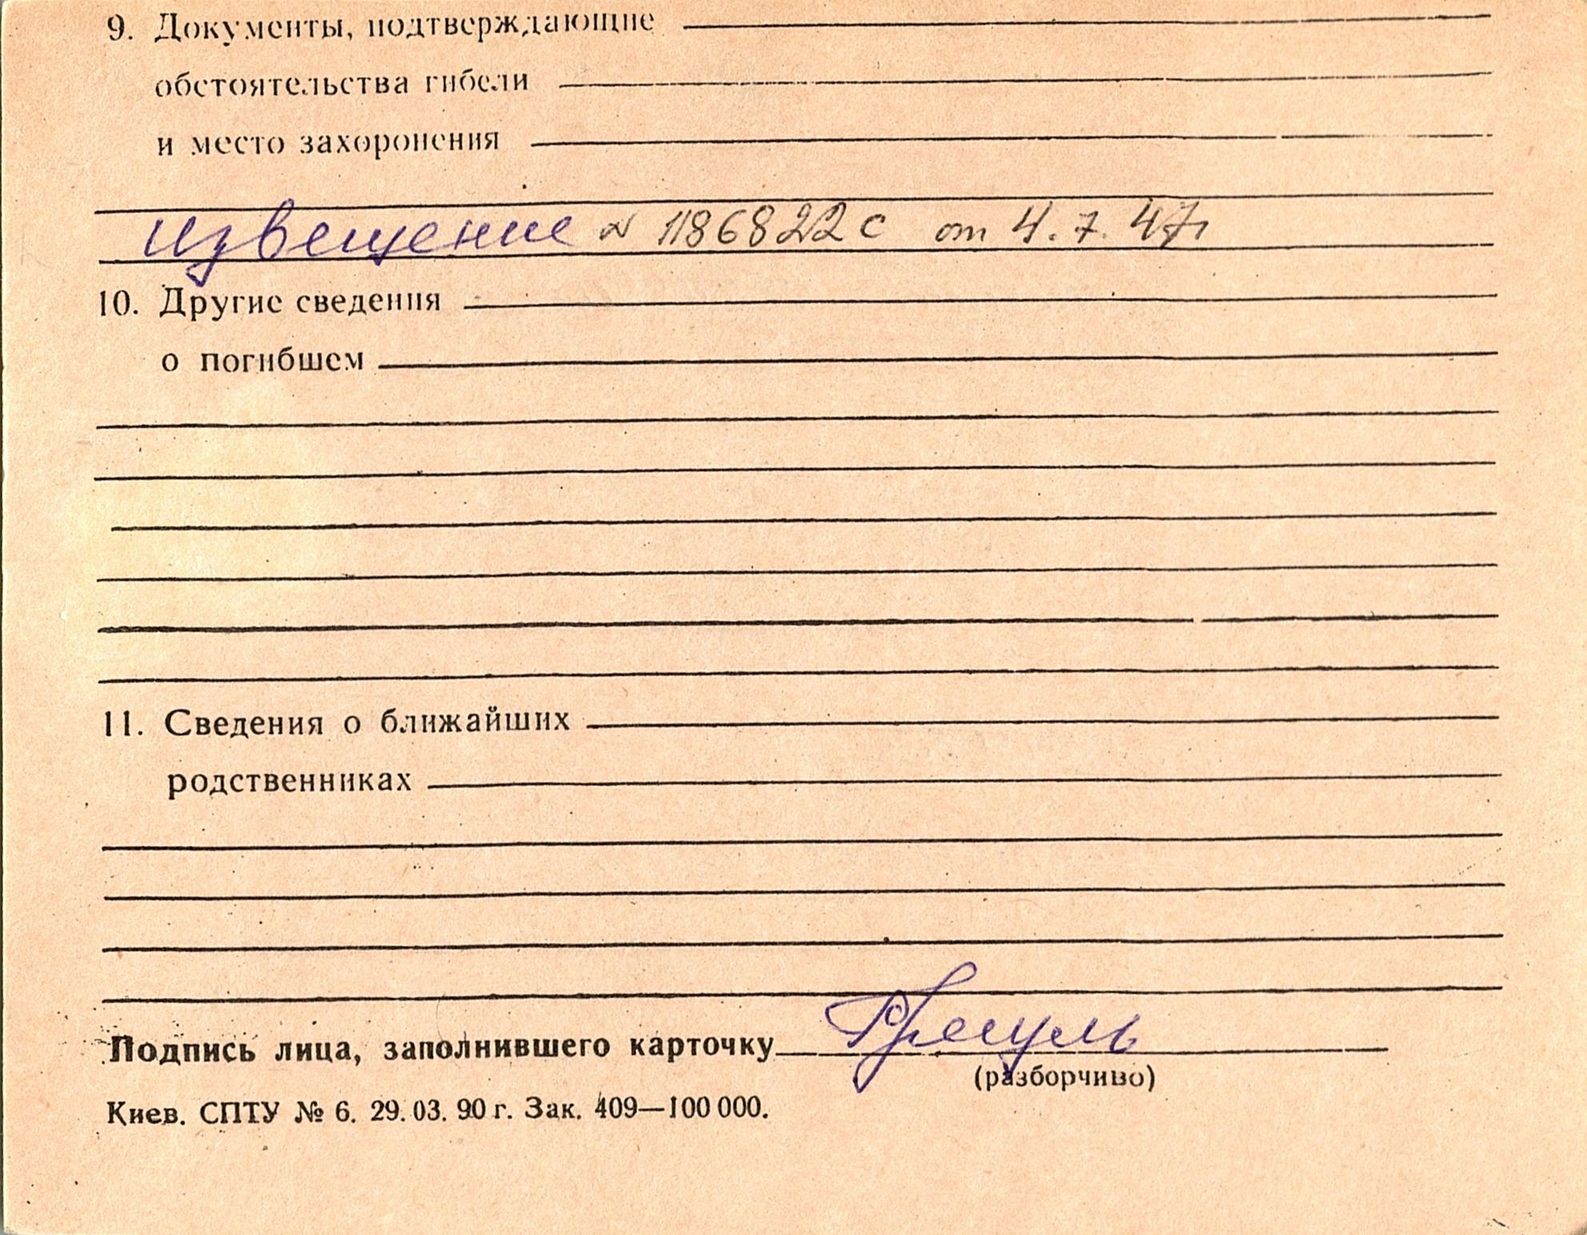 9. Документы, подтверждающие
обстоятельства гибели
и место захоронения
извещение № 1186822 с от 4.7.47г
10. Другие сведения
о погибшем
11. Сведения о ближайших
родственниках
Подпись лица, заполнившего карточку
(разборчиво)
Киев. СПТУ № 6. 29.03.90 г. Зак. 409—100 000.